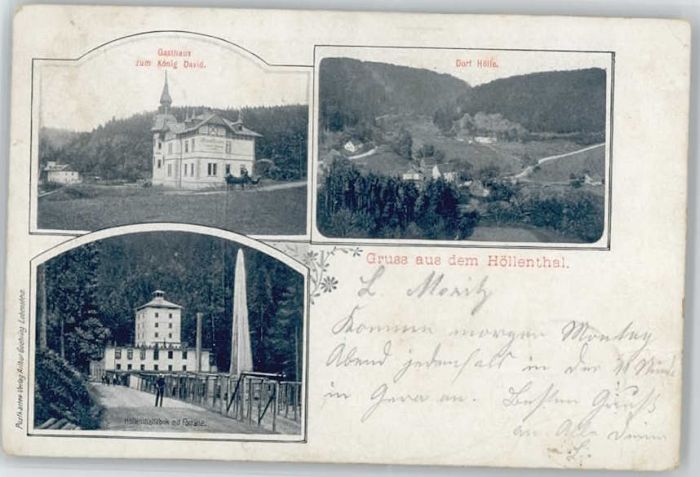 Gasthaus
zum König David.
Dorf Hölle.
Gruss aus dem Höllenthal.
L Moritz
Komme morgen Montag
Abend jedenfalls in der
in Gera an. Besten Gruß
an Alle Deine
L.
Höllenthalfabrik mit Fontaine.
Postkarten-Verlag Arthur Lobenstein.